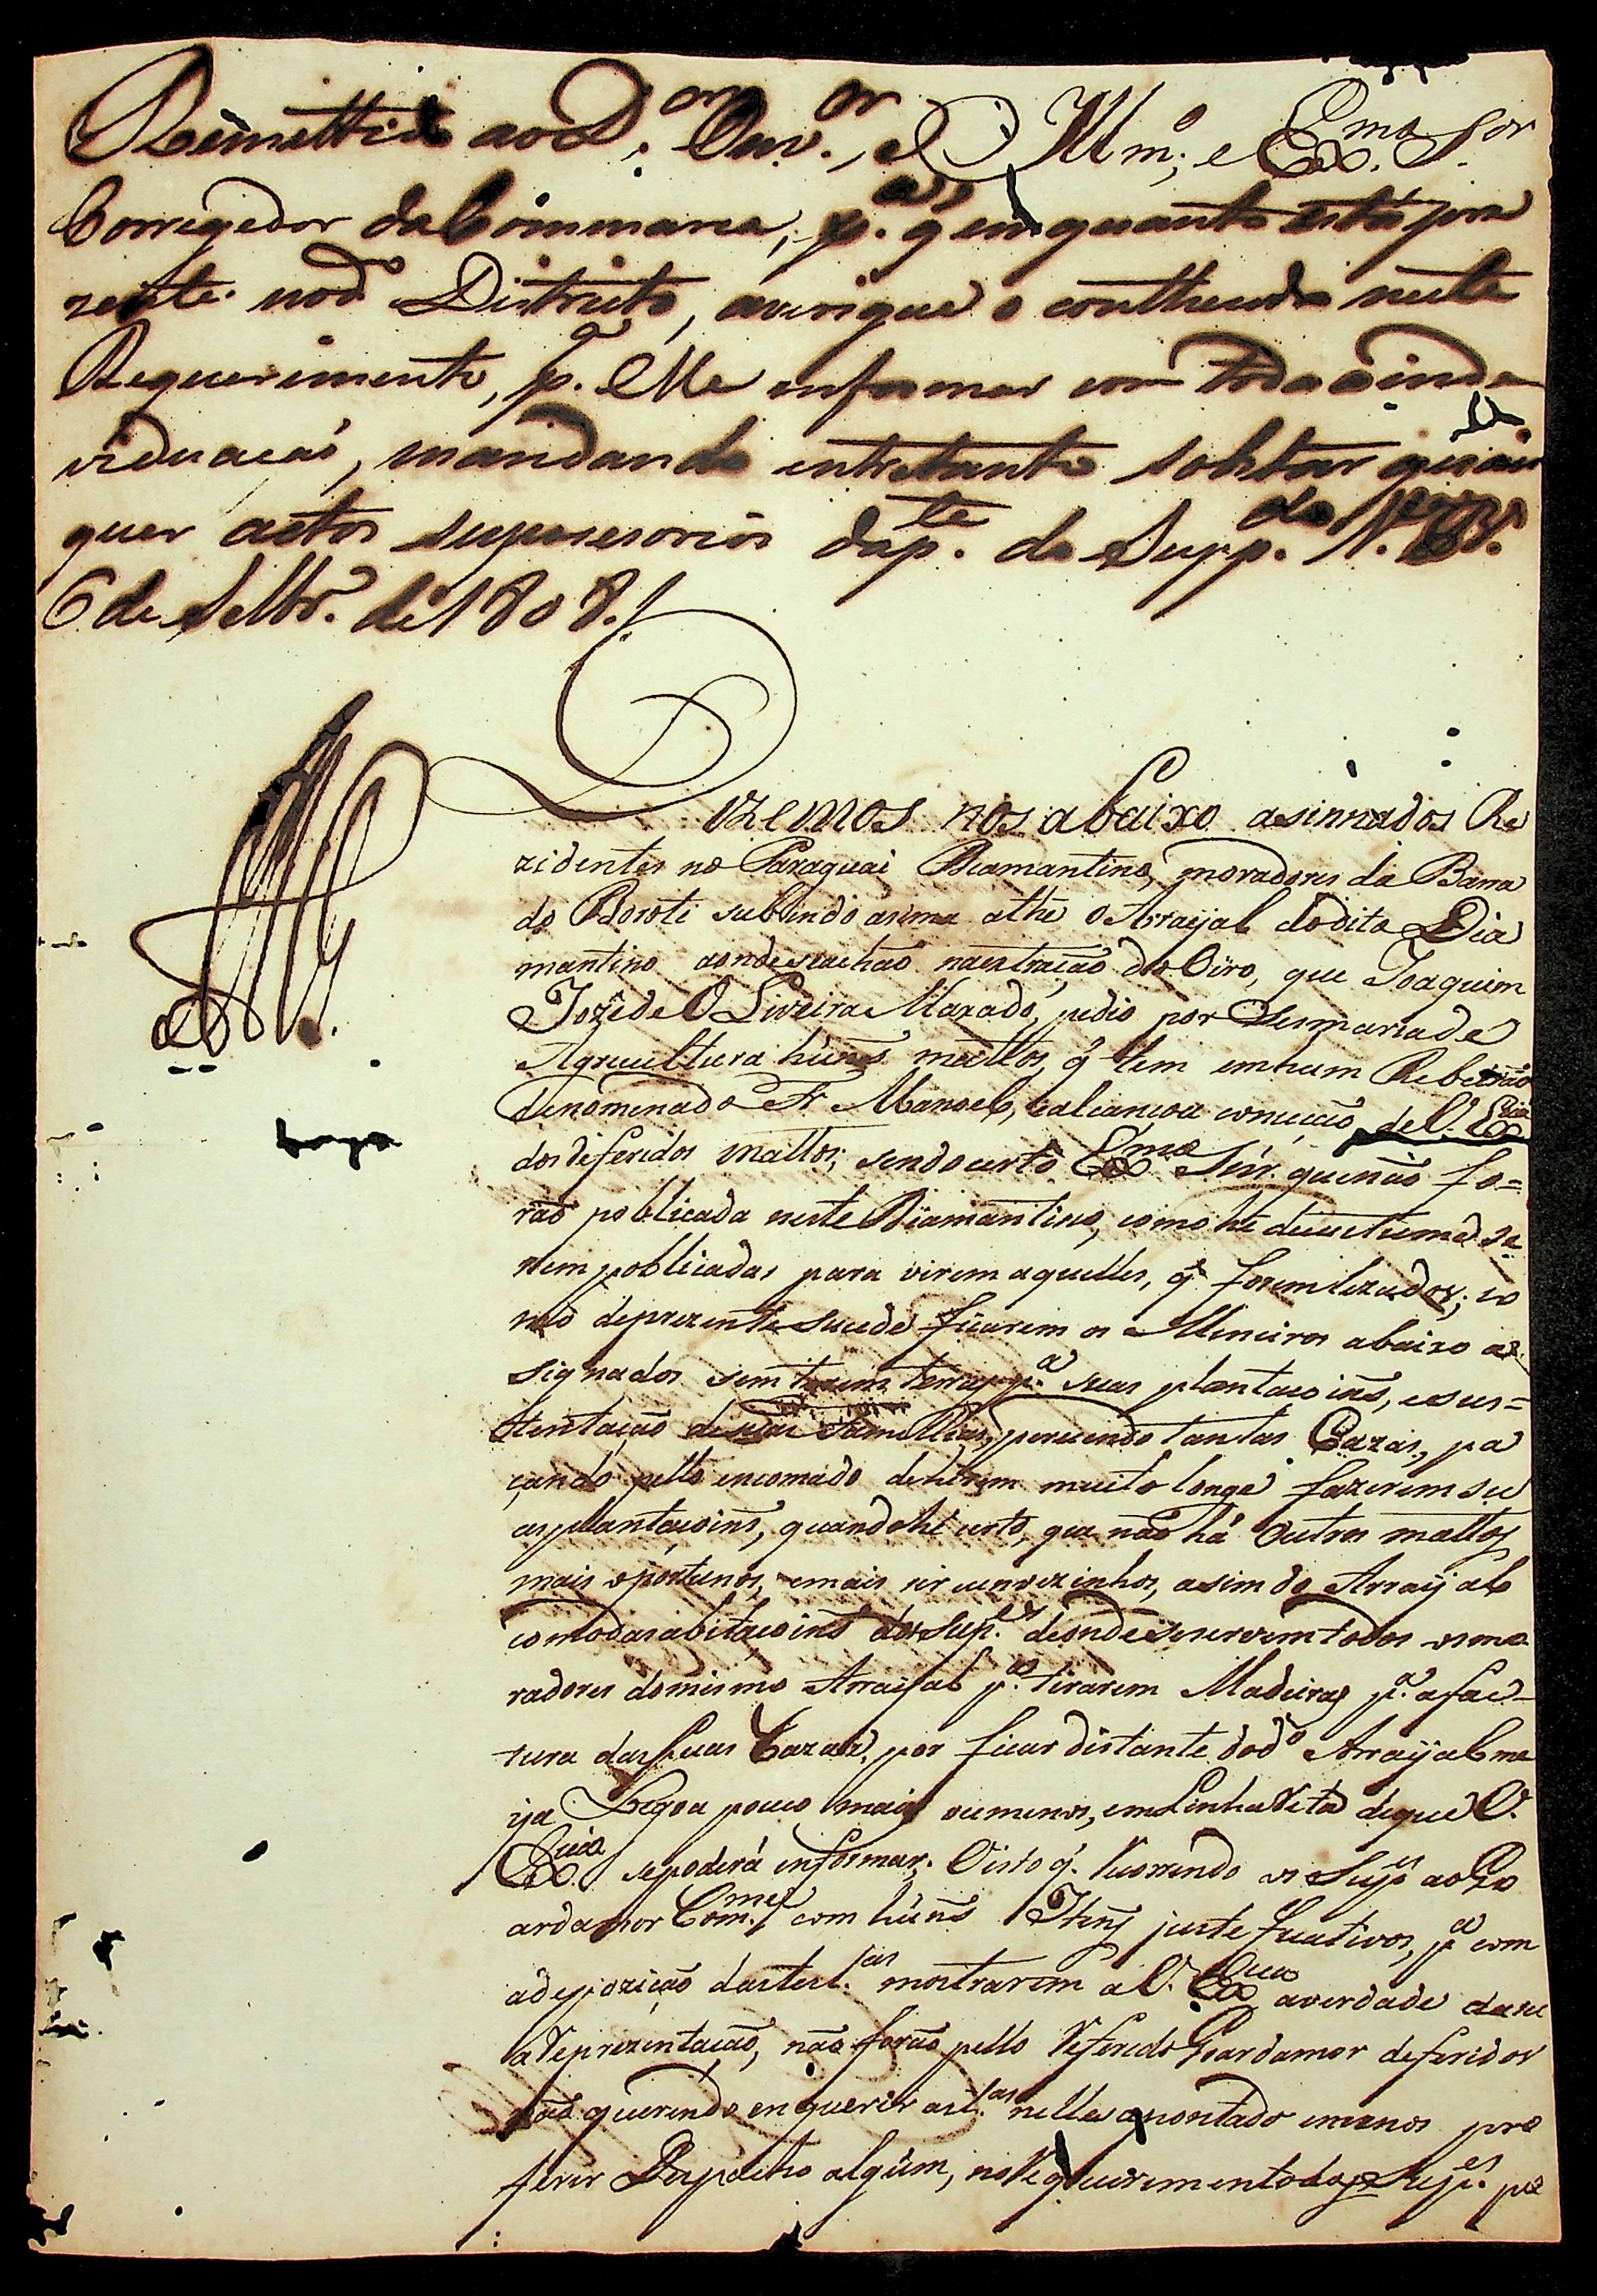 Remettido ao D.or Ouv.or, e Illm.o e Ex.mo Sor
Corregedor da Commarca, p.a q em quanto está pre
zente no d.o Districto, averigue o contheudo neste
Requerimento, p.a Me enformar com toda a inde
viduacaó, mandando entretanto sobstar quais
quer actos da p.te do Supp.do
6 de Settbr.o de 1808.
Dizemos nos abaixo asinnados Re
zidentes no Paraguai Diamantino, moradores da Barra
do Boroti subindo asima athe o Arraÿal do dito Dia
mantino aonde se achaõ na extraçaõ do Oiro, que Joaquim
Jozé de OLiveira Maxado, pedio por Sesmaria de
Agrecultura huñs mattos, q tem em hum Rebeiraõ
denomenado Fr Manoel, e alcançou conceçaõ de V. Ex.cia
dos deferidos mattos; sendo certo Ex.mo Snr. que naõ fo=
raõ poblicada neste Diamantino, como hé de custume se
rem poblicadas para virem aquelles, q forem lezados; co
mo de prezente sucede ficarem os Mineiros abaixo as
signados sem terem terras p.a suas plantaçoins, e sus=
tentaçaõ de suas Famillias, perecendo tantas Cazas, pa
çando pello encomado de hirem muito longe fazerem su
as plantaçoins, quando hé certo, que naõ há outros mattos
mais oportunos, e mais sircunvezinhos, asim do Arraÿal
como das abitaçoins dos Sup.es de onde se servem todos os mo
radores do mesmo Arraÿal p.a tirarem Madeiras p.a a fac-
tura das suas Cazas, por ficar distante do d.o Arraÿal me
ya Legoa pouco mais ou menos, em Linha Reta de que V.
Ex.cia se poderá enformar. Visto q. recorrendo os Sup.es ao Gu
ardamor com huñs Itens justeficativos, p.a com
a depoziçaõ das test.as mostrarem a V. Ex.cia a verdade da su
a Reprezentaçaõ, naõ foraõ pello Referido Goardamor deferidos
naõ querendo enquerir as t.as nelles apontado e menos pro
ferir Despacho algúm, no Requerimento dos Sup.es pe